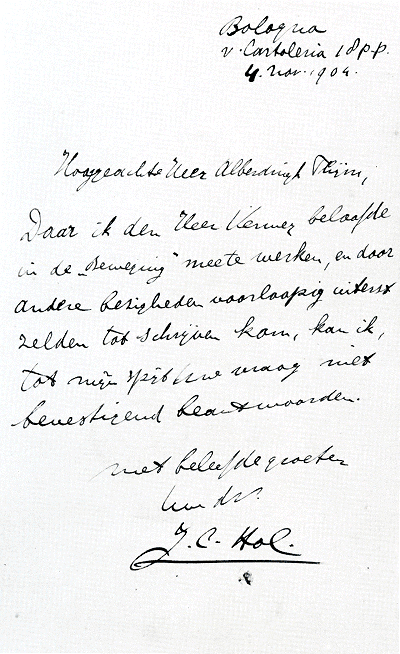 Bologna
v. Cartoleria 18 p.p.
4. nov. 1904.
Hooggeachte Heer Alberdingk Thijm,
Daar ik den Heer Verwey beloofde
in de „Beweging" meete werken, en door
andere bezigheden voorloopig uiterst
zelden tot schrijven kom, kan ik,
tot mijn spijt Uwe vraag niet
bevestigend beantwoorden.
met beleefde groeten
Uw dv.
J. C. Hol.